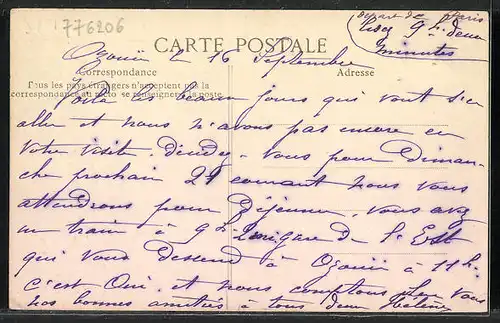 776206
départ de Paris
9h deux
minutes
CARTE POSTALE
Ozouër le 16 Septembre
Correspondance
Adresse
Tous les pays étrangers n'acceptent pas la
correspondance au recto se renseigner à la poste
Voilà les beaux jours qui vont s'en
aller et nous n'avons pas encore eu
votre visite. Décidez-vous pour diman-
che prochain 21 courant nous vous
attendrons pour Déjeuner. Vous avez
un train à 9h gare de l'Est
qui vous descend à Ozouër à 11h.
c'est Oui, et nous comptons sur vous
nos bonnes amitiés à tous deux Hélène